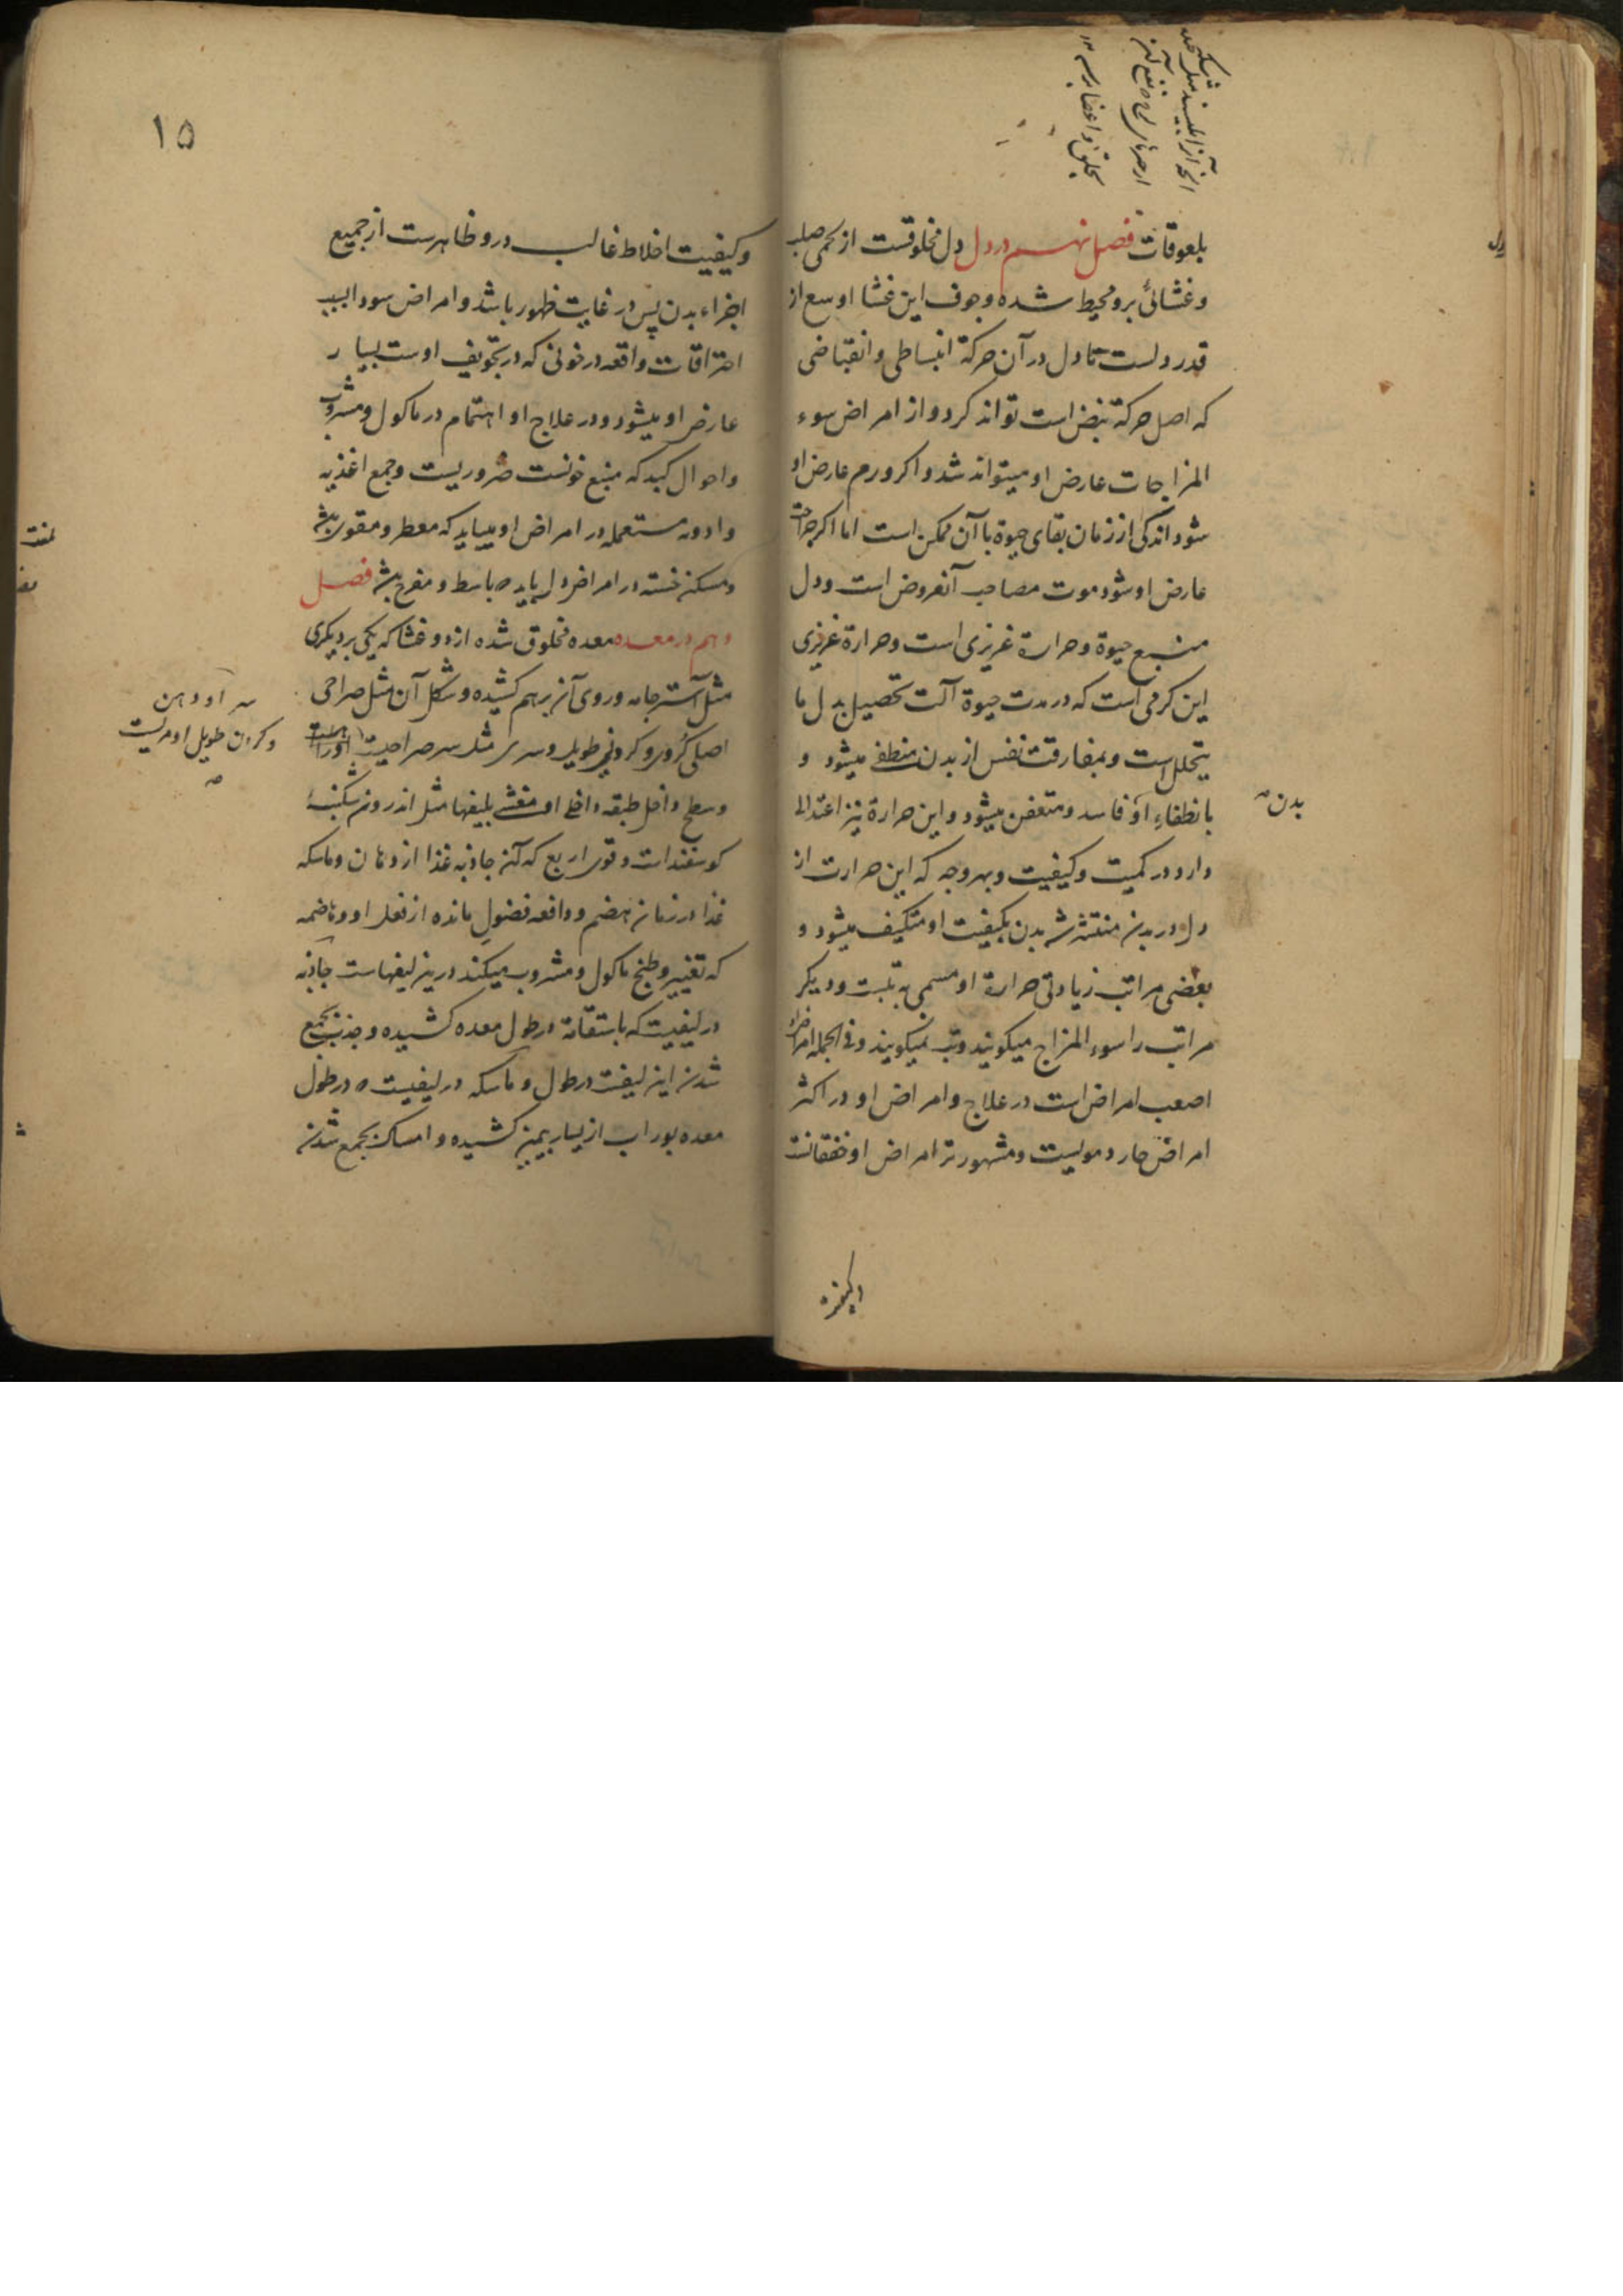 بلعوقات فصل نهم در دل دل مخلوقست از لحمی صلب
و غشائی برو محیط شده و جوف این غشا اوسع از
قدر دلست تا دل در آن حرکة انبساطی و انقباضی
که اصل حرکة نبض است تواند کرد و از امراض سوء
المزاجات عارض او میتواند شد و اکر ورم عارض او
شود اندکی از زمان بقای حیوة با آن ممکن است اما اکر جراحة
عارض او شود موت مصاحب آنعروض است و دل
منبع حیوة و حرارة غریزی است و حرارة غریزی
این کرمی است که در مدت حیوة آلت تحصیل بدل ما
یتحلل است و بمفارقت نفس از بدن منطفی میشود و
بانطفاء او فاسد و متعفن میشود و این حرارة نیز اعتدالی
دارد در کمیت و کیفیت و بهر وجه که این حرارت از
دل در بدن منتشر شد بدن بکیفیت او متکیف میشود و
بعضی مراتب زیادتی حرارة او مسمی به تبست و دیکر
مراتب را سوء المزاج میکویند و تب نمیکویند و فی الجمله امراض
اصعب امراض است در علاج و امراض او در اکثر
امراض حار دمویست و مشهورتر امراض او خفقانست
بدن
۱۵
و کیفیت اخلاط غالب درو ظاهرست از جمیع
اجزاء بدن پس در غایت ظهور باشد و امراض سودا بسبب
احتراقات واقعه در خونی که در تجویف اوست بسیار
عارض او میشود و در علاج او اهتمام در ماکول و مشروب
و احوال کبد که منبع خونست ضروریست و جمع اغذیه
و ادویه مستعمله در امراض او میباید که معطر و مقوی باشد
و مسکن خسته در امراض دل باید که باسط و مفرح باشد فصل
دهم در معده معده مخلوق شده از دو غشا که یکی بر دیکری
مثل آستر جامه و روی آن برهم کشیده و شکل آن مثل صراحی
اصلی کروی و کردنی طویل و سری مثل سر صراحیست
و سطح داخل طبقه داخلی او مغشی بلیفها مثل اندرون شکنبهٔ
کوسفند است و قوی اربع که آن جاذبه غذا از دهان و ماسکه
غذا در زمان هضم و دافعه فضول مانده از فعل او و هاضمه
که تغییر و طبخ ماکول و مشروب میکند درین لیفهاست جاذبه
در لیفیست که باستقامة در طول معده کشیده و جذب بجمع
شدن این لیفست در طول و ماسکه در لیفیست که در طول
معده بوراب از یسار بیمین کشیده و امساک بجمع شدن
سر او دهن
و کردن طویل او مریست